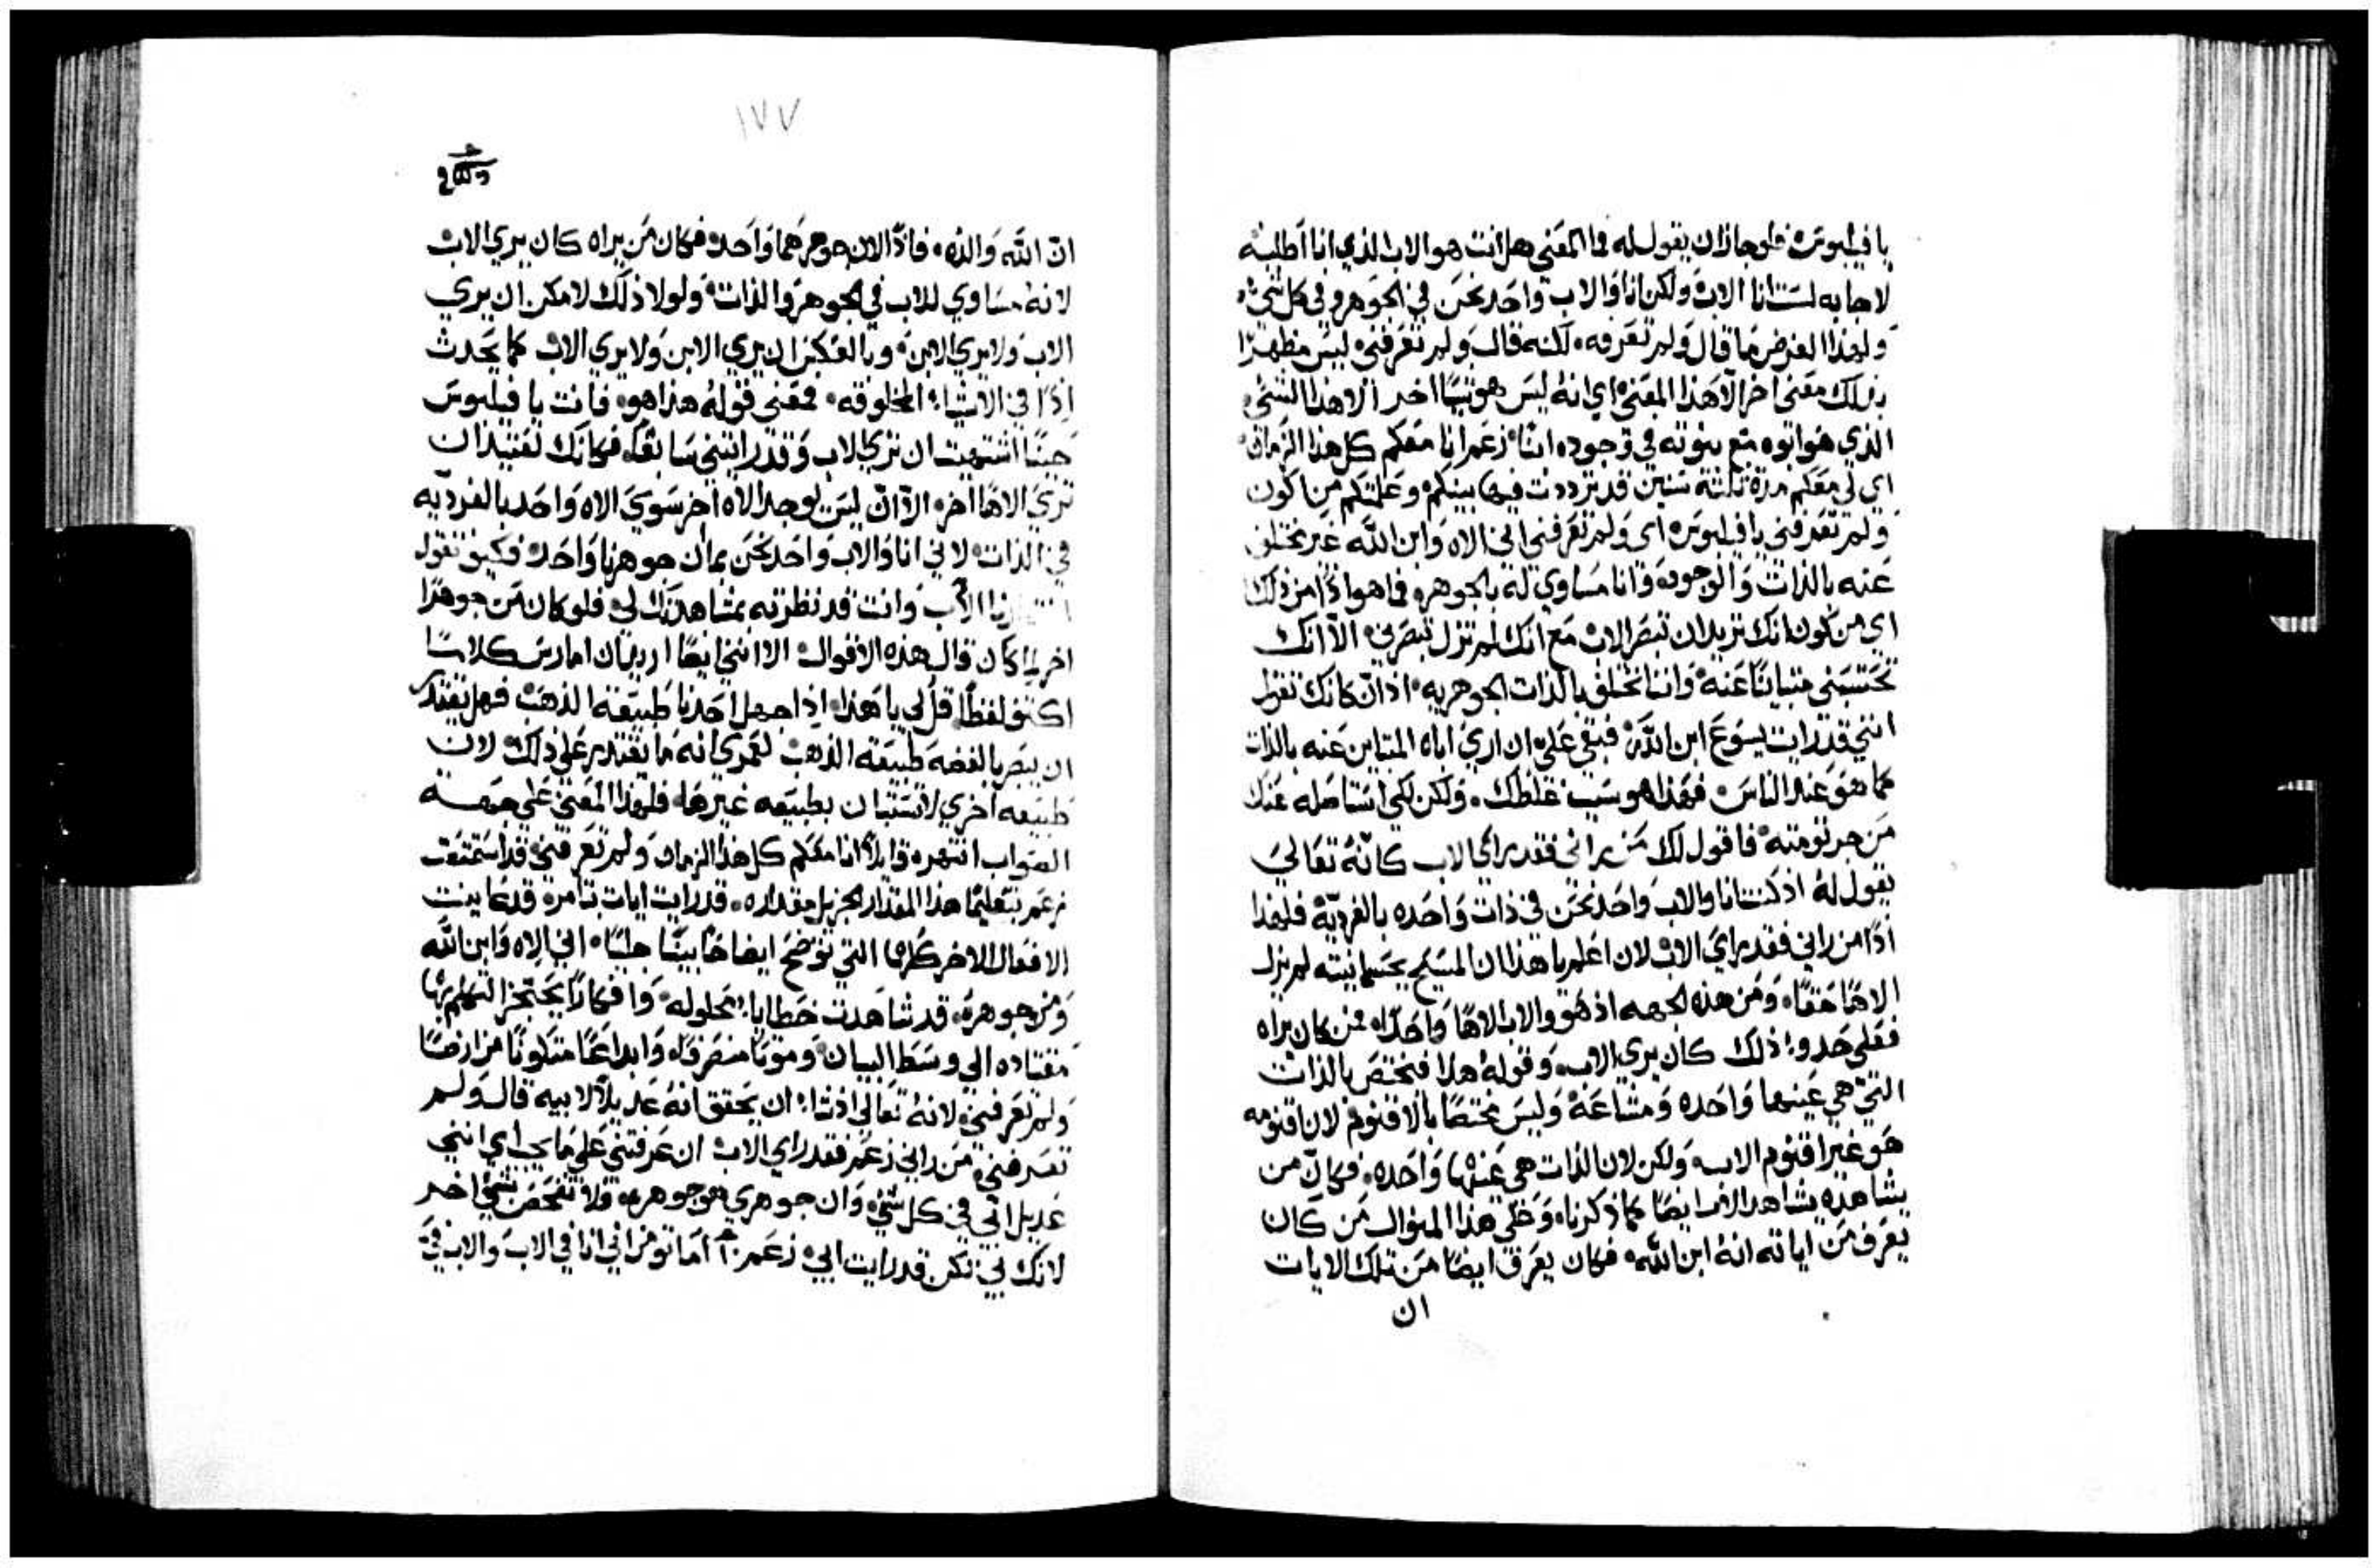 يا فيلبوس فلو جاز ان يقول له فما المعني هل انت هو الاب الذي انا اطلبه
لاجابه لست انا الاب ولكن انا والاب واحد نحن في الجوهر وفي كل شيء
ولهذا الغرض ما قال ولم تعرفه لكنه قال ولم تعرفني ليس مظهرًا
بذلك معني اخر الا هذا المعني اي انه ليس هو شيًا اخر الا هذا الشيء
الذي هو ابوه مع بنوته في وجوده ابنًا زعم انا معكم كل هذا الزمان
اي لي معكم مدة ثلثة سنين قد ترددت فيها بينكم وعلمتكم من اكون
ولم تعرفني يا فيلبوس اي ولم تعرفني اني الاه وابن الله غير مختلف
عنه بالذات والوجود وانا مساوي له بالجوهر فما هو اذًا من ذلك
اي من كون انك تريد ان تبصر الاب مع انك لم تزل تبصرني الا انك
تحتسبني متباينًا عنه واننا نختلف بالذات الجوهريه اذ ان كانك تقول
انني قد رايت يسوع ابن الله فبقي علي ان اري اباه المتباين عنه بالذات
كما هو عند الناس فهذا هو سبب غلطك ولكن لكي استاصله عنك
من جرثومته فاقول لك من راني فقد راي الاب كانه تعالي
يقول له اذ كنت انا والاب واحد نحن في ذات واحده بالفرديّة فلهذا
اذًا من راني فقد راي الاب لان اعلم يا هذا ان المسيح بجسمانيته لم يزل
الاهًا حقًا ومن هذه الجهه اذ هو والاب الاهًا واحدًا فمن كان يراه
فعلي حدو ذلك كان يري الاب وقوله هذا فيختص بالذات
التي هي عينها واحده ومشاعة وليس مختصًا بالاقنوم لان اقنومه
هو غير اقنوم الاب ولكن لان الذات هي عينها واحده فكان من
يشاهده يشاهد الاب ايضًا كما ذكرنا وعلي هذا المنوال من كان
يعرف من اياته انه ابن الله فكان يعرف ايضًا من تلك الايات
ان
١٧٧
انّ الله والده فاذ الان جوهرهما واحد فكان من يراه كان يري الاب
لانه مساوي للاب في الجوهر والذات ولولا ذلك لامكن ان يري
الاب ولا يري الابن وبالعكس ان يري الابن ولا يري الاب كما يحدث
اذًا في الاشياء المخلوقه فمعني قوله هذا هو فانت يا فيلبوس
حينًا اشتهيت ان تري الاب وقد رايتني سابقًا فكانك تقتيد ان
تري الاهًا اخر الا ان ليس يوجد الاه اخر سوي الاه واحد بالفرديّه
في الذات لاني انا والاب واحد نحن بما ان جوهرنا واحد فكيف تقول
ارنا الاب وانت قد نظرته بمشاهدتك لي فلو كان من جوهرًا
اخر لما كان قال هذه الاقوال الا انني ايضًا اريد ان امارس كلامًا
اكثف لفظًا قل لي يا هذا اذا جهل احدنا طبيعة الذهب فهل يقتدر
ان يبصر بالفضه طبيعة الذهب لعمري انه ما يقتدر علي ذلك لان
طبيعه اخري لا تستبان بطبيعه غيرها فلهذا المعني علي جهة
الصواب انتهره قايلاً انا معكم كل هذا الزمان ولم تعرفني قد استمتعت
زعم بتعليمًا هذا المقدار الجزيل مقداره قد رايت ايات بتامره قد عاينت
الافعال الاخر كلها التي توضح ايضاحًا بينًا جليًا اني الاه وابن الله
ومن جوهره قد شاهدت خطايا محلوله وافكارًا يحتجز التكلم بها
مقتاده الي وسط البيان وموتًا منصرفًا وابداعًا متكونًا من ارضًا
ولم تعرفني لانه تعالي اذ شاء ان يحقق انه عديلاً لابيه قال ولم
تعرفني من راني زعم فقد راي الاب ان عرفتني علي ما يجب اي انني
عديل ابي في كل شيء وان جوهري هو جوهره ولا تفحص شيء اخر
لانك بي تكن قد رايت ابي زعم اما تومن اني انا في الاب والاب فيَّ